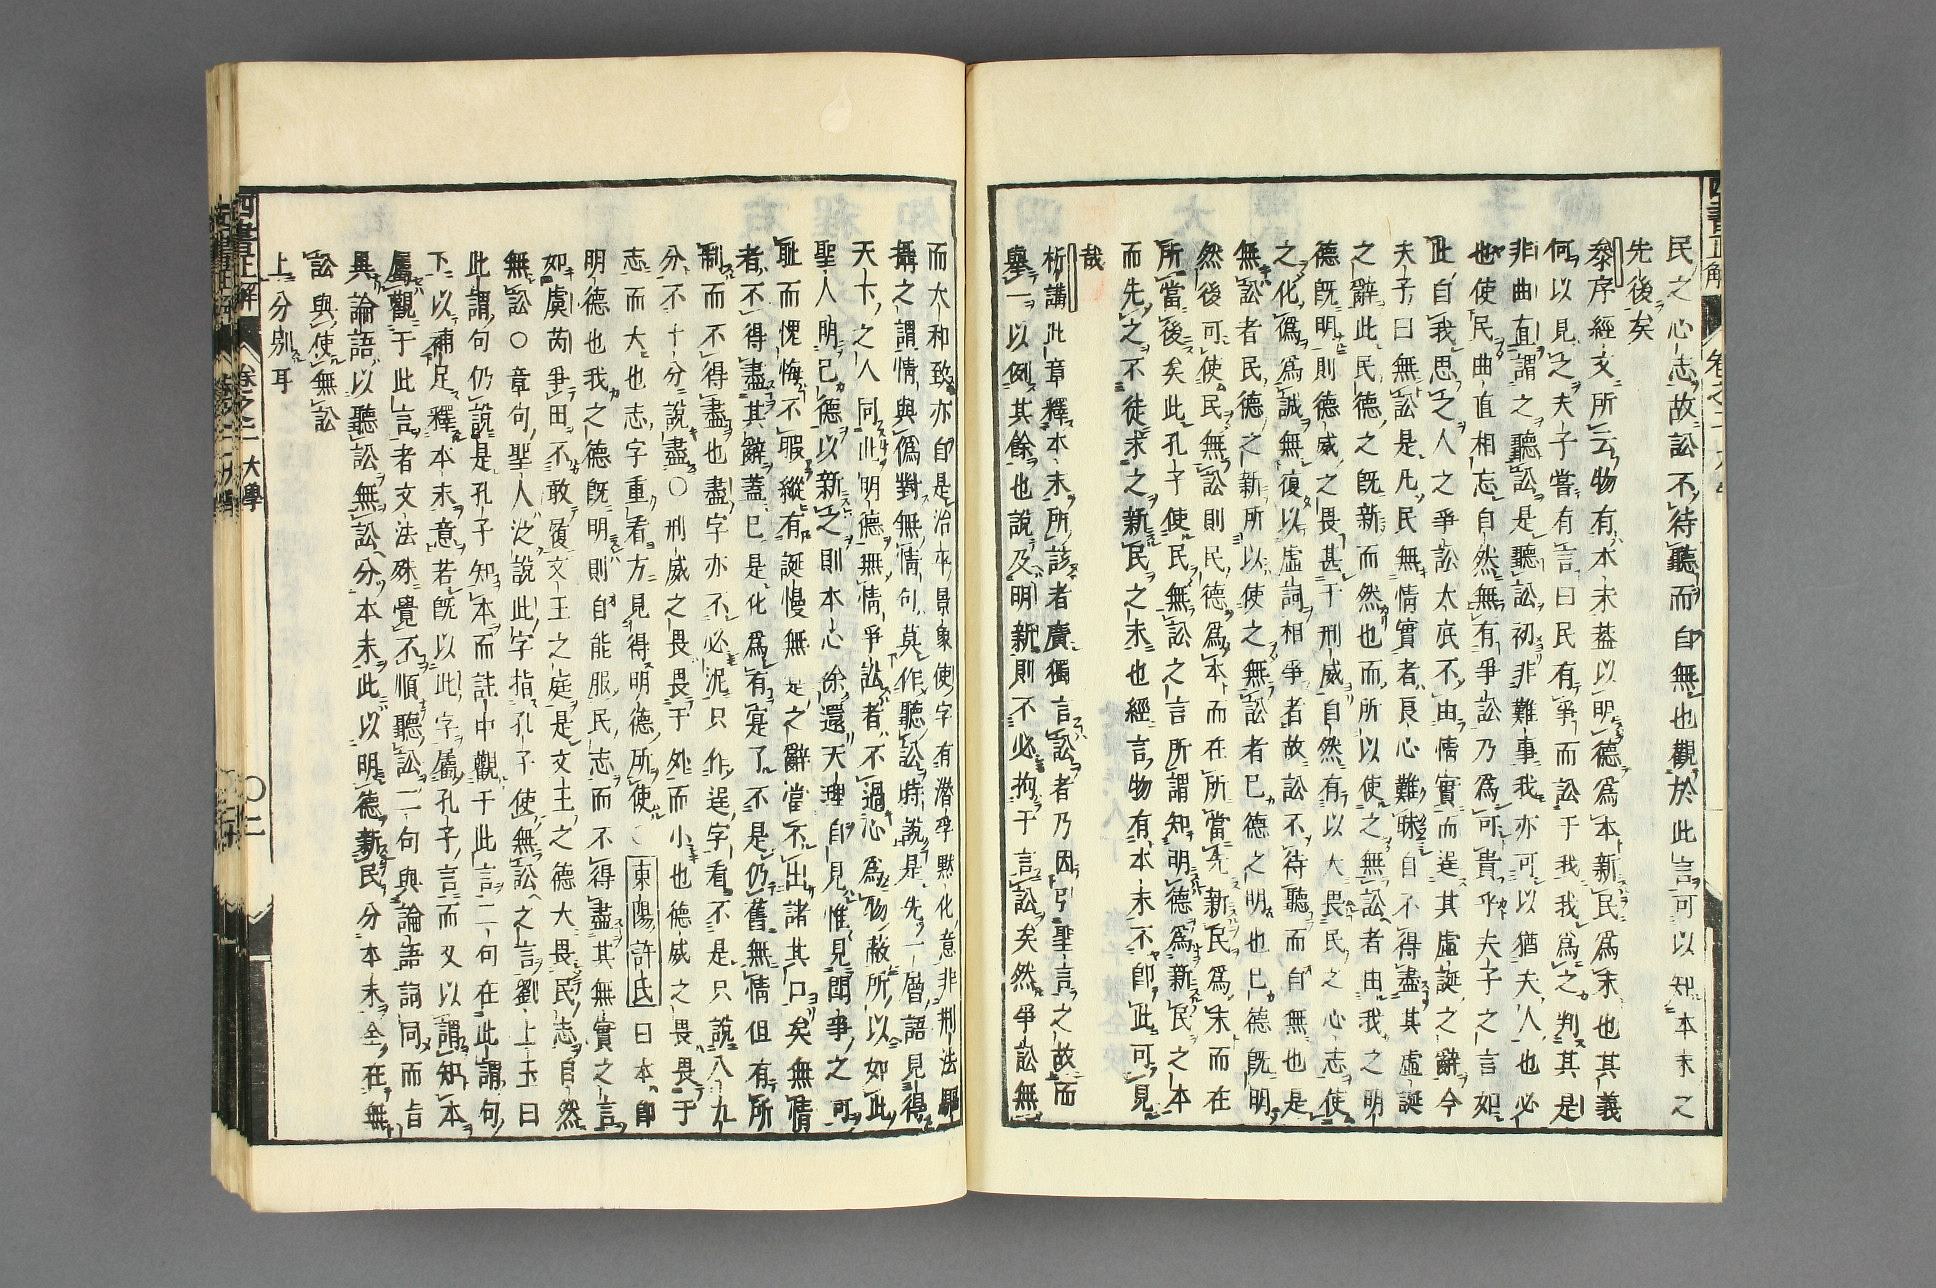 民之心志故訟不待聽而自無也觀於此言可以知本末之
先後矣
參序經文所云物有本末蓋以明德為本新民為末也其義
何以見之夫子嘗有言曰民有爭而訟于我我為之判其是
非曲直謂之聽訟是聽訟初非難事我亦可以猶夫人也必
也使民曲直相忘自然無有爭訟乃為可貴乎夫子之言如
此自我思之人之爭訟大底不由情實而逞其虛誕之辭今
夫子曰無訟是凡民無情實者良心難昧自不得盡其虛誕
之辭此民德之既新而然也而所以使之無訟者由我之明
德既明則德威之畏甚于刑威自然有以大畏民之心志使
之化為誠無復以虛詞相爭者故訟不待聽而自無也是
無訟者民德之新所以使之無訟者已德之明也已德既明
然後可使民無訟則民德為本而在所當先新民為末而在
所當後矣此孔子使民無訟之言所謂知明德為新民之本
而先之不徒求之新民之末也經言物有本末不即此可見
哉
析講此章釋本末所該者廣獨言訟者乃因引聖言之故而
舉一以例其餘也說及明新則不必拘于言訟矣然爭訟無
而太和致亦自是治平景象使字有潛孚默化意非刑法驅
攝之謂情與偽對無情句莫作聽訟時說是先一層語見得
天下之人同此明德無情爭訟者不過心為物蔽所以如此
聖人明己德以新之則本心餘還天理自見惟見聞爭之可
耻而愧悔不暇縱有誕慢無是之辭當不出諸其口矣無情
者不得盡其辭蓋已是化為有寔了不是仍舊無情但有所
制而不得盡也盡字亦不必泥只作逞字看不是只說八九
分不十分說盡〇刑威之畏畏于外而小也德威之畏畏于
志而大也志字重看方見得明德所使〇東陽許氏曰本即
明德也我之德既明則自能服民志而不得盡其無實之言
如虞芮爭田不敢履文王之庭是文王之德大畏民志自然
無訟〇章句聖人汝說此字指孔子使無訟之言劉上玉曰
此謂句仍說是孔子知本而註中觀于此言二句在此謂句
下以補足釋本末意若既以此字屬孔子言而又以謂知本
屬觀于此言者文法殊覺不順聽訟二句與論語詞同而旨
異論語以聽訟無訟分本末此以明德新民分本末全在無
訟與使無訟
上分別耳
四書正解
卷之二 大學